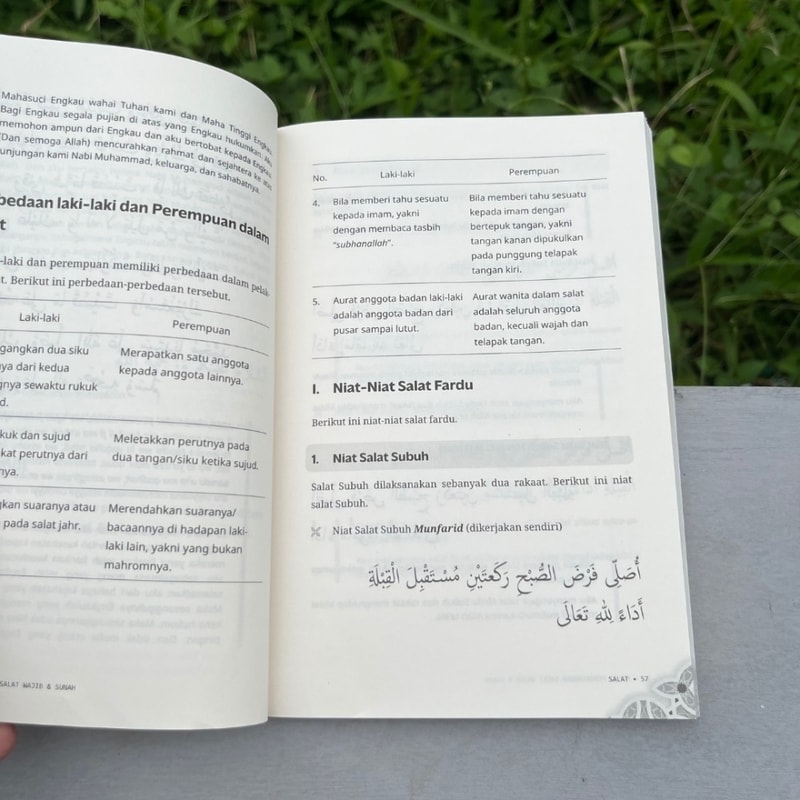 Mahasuci Engkau wahai Tuhan kami dan Maha Tinggi Engkau.
Bagi Engkau segala pujian di atas yang Engkau hukumkan. Aku
memohon ampun dari Engkau dan aku bertobat kepada Engkau.
(Dan semoga Allah) mencurahkan rahmat dan sejahtera ke atas
unjungan kami Nabi Muhammad, keluarga, dan sahabatnya.
bedaan laki-laki dan Perempuan dalam
t
-laki dan perempuan memiliki perbedaan dalam pelak-
t. Berikut ini perbedaan-perbedaan tersebut.
Laki-laki Perempuan
gangkan dua siku Merapatkan satu anggota
nya dari kedua kepada anggota lainnya.
gnya sewaktu rukuk
d.
kuk dan sujud Meletakkan perutnya pada
kat perutnya dari dua tangan/siku ketika sujud.
nya.
gkan suaranya atau Merendahkan suaranya/
pada salat jahr. bacaannya di hadapan laki-
laki lain, yakni yang bukan
mahromnya.
SALAT WAJIB & SUNAH
No. Laki-laki Perempuan
4. Bila memberi tahu sesuatu Bila memberi tahu sesuatu
kepada imam, yakni kepada imam dengan
dengan membaca tasbih bertepuk tangan, yakni
“subhanallah”. tangan kanan dipukulkan
pada punggung telapak
tangan kiri.
5. Aurat anggota badan laki-laki Aurat wanita dalam salat
adalah anggota badan dari adalah seluruh anggota
pusar sampai lutut. badan, kecuali wajah dan
telapak tangan.
I. Niat-Niat Salat Fardu
Berikut ini niat-niat salat fardu.
1. Niat Salat Subuh
Salat Subuh dilaksanakan sebanyak dua rakaat. Berikut ini niat
salat Subuh.
Niat Salat Subuh Munfarid (dikerjakan sendiri)
أُصَلِّى فَرْضَ الصُّبْحِ رَكْعَتَيْنِ مُسْتَقْبِلَ الْقِبْلَةِ
أَدَاءً لِلّٰهِ تَعَالَى
SALAT • 57